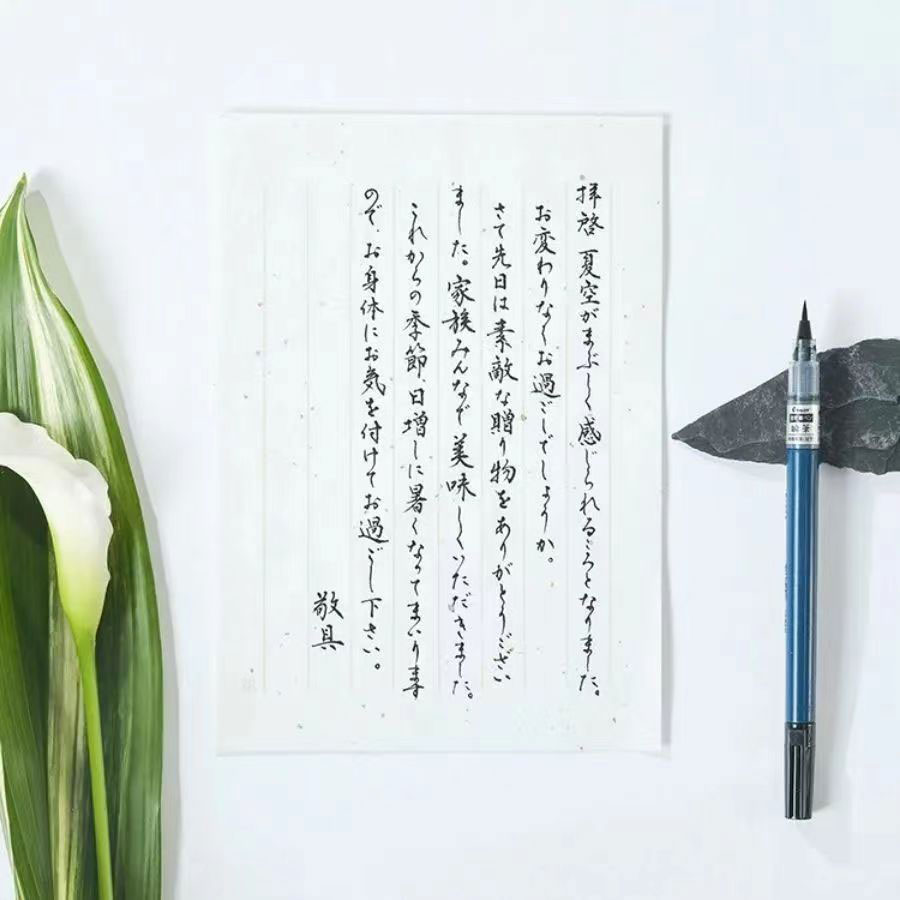 拝啓 夏空がまぶしく感じられるころとなりました。
お変わりなくお過ごしでしょうか。
さて先日は素敵な贈り物をありがとうござい
ました。家族みんなで美味しくいただきました。
これからの季節、日増しに暑くなってまいります
ので、お身体にお気を付けてお過ごし下さい。
敬具